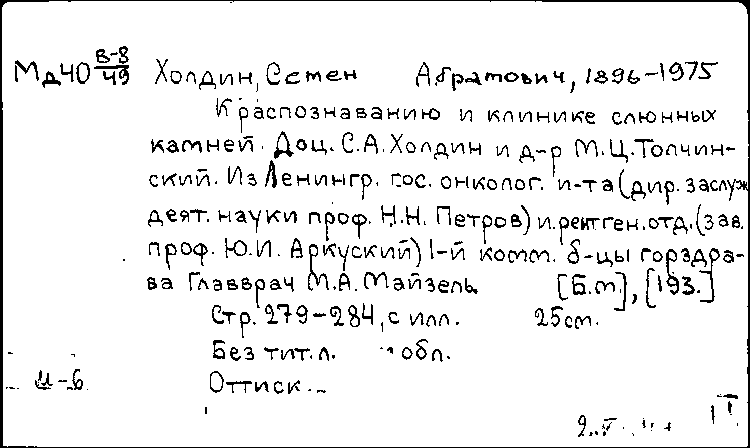 Мд40 В-8/49 Холдин, Семен Абрамович, 1896-1975
К распознаванию и клинике слюнных
камней. Доц. С.А. Холдин и д-р М.Ц. Толчин-
ский. Из Ленингр. гос. онколог. и-та (дир. заслуж
деят. науки проф. Н.Н. Петров) и рентген. отд. (зав.
проф. Ю.И. Аркуский) 1-й комм. б-цы горздра-
ва Главврач М.А. Майзель [Б.м], [193.]
Стр. 279-284, с илл. 25 см.
Без тит. л. и обл.
М-6 Оттиск.